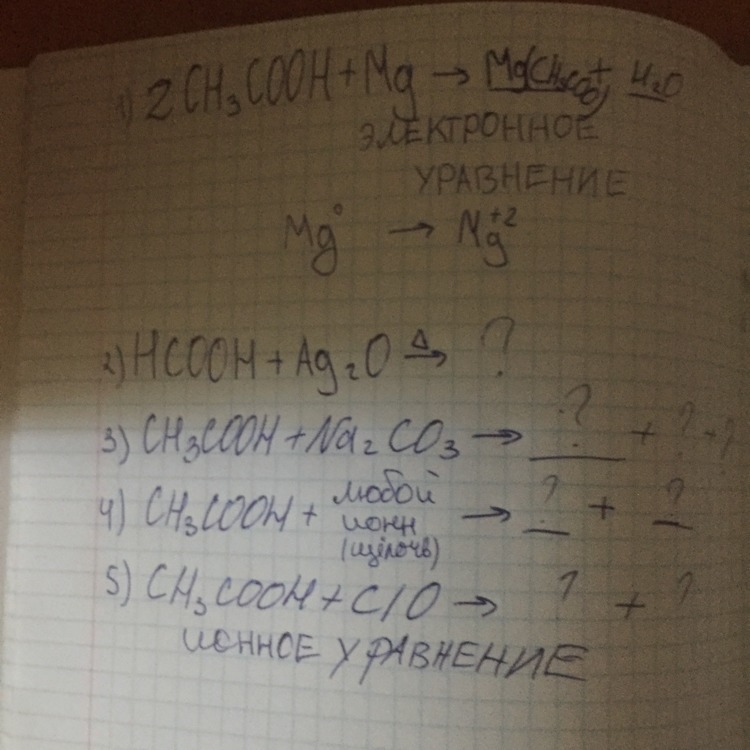 1) 2CH₃COOH + Mg → Mg(CH₃COO)₂ + H₂O
ЭЛЕКТРОННОЕ
УРАВНЕНИЕ
Mg⁰ → Mg⁺²
2) HCOOH + Ag₂O →Δ ?
3) CH₃COOH + Na₂CO₃ → ? + ? + ?
4) CH₃COOH + любой ионн (щілочь) → ? + ?
5) CH₃COOH + C/O → ? + ?
ИОННОЕ УРАВНЕНИЕ